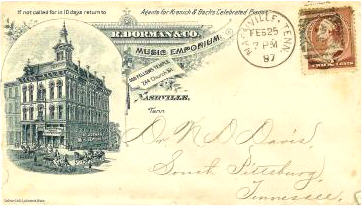 If not called for in 10 days return to
Agents for Kranich & Bach's Celebrated Pianos
R. DORMAN & CO.
MUSIC EMPORIUM.
ODD FELLOWS TEMPLE
Church St.
NASHVILLE,
Tenn
NASHVILLE, TENN.
FEB 25
7 PM
87
Dr. M D Davis,
South Pittsburg,
Tennessee.